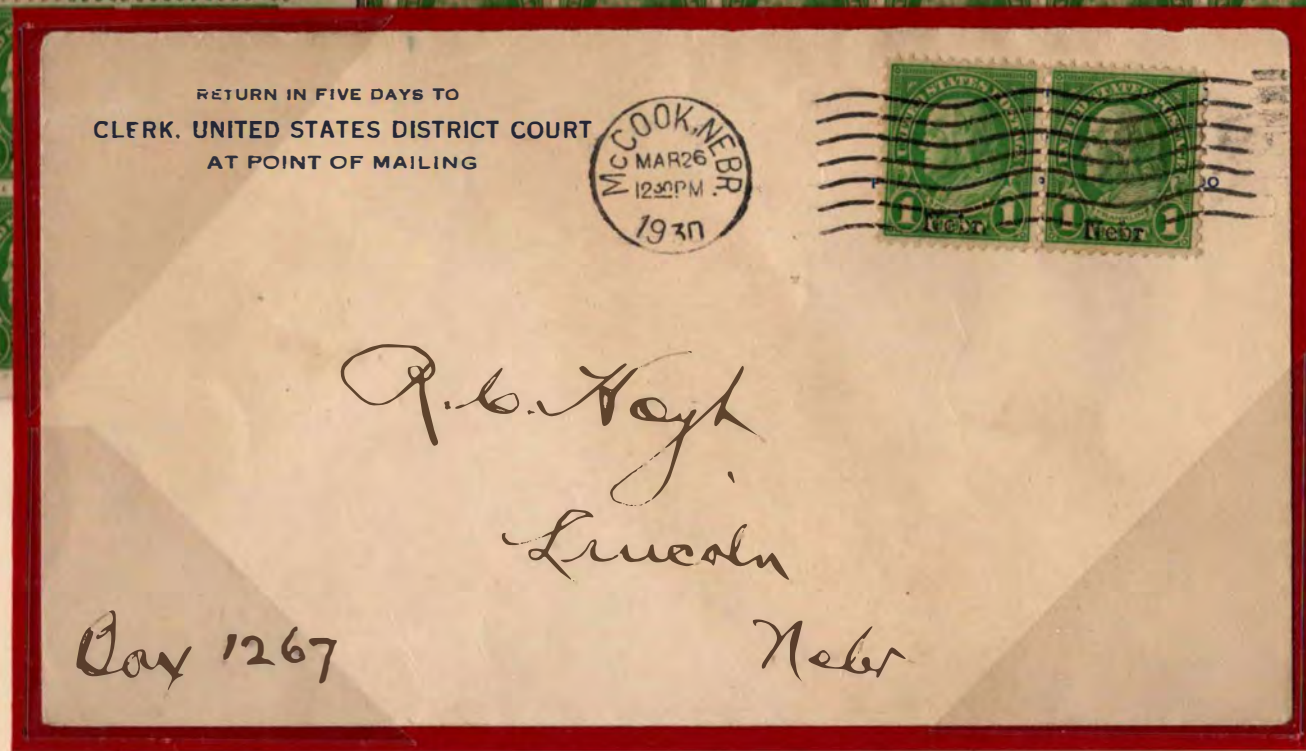 RETURN IN FIVE DAYS TO
CLERK, UNITED STATES DISTRICT COURT
AT POINT OF MAILING
McCOOK, NEBR.
MAR 26
12 30 PM
1930
UNITED STATES POSTAGE
1 Nebr. 1
UNITED STATES POSTAGE
1 Nebr. 1
R. C. Hoyt
Lincoln
Box 1267 Nebr